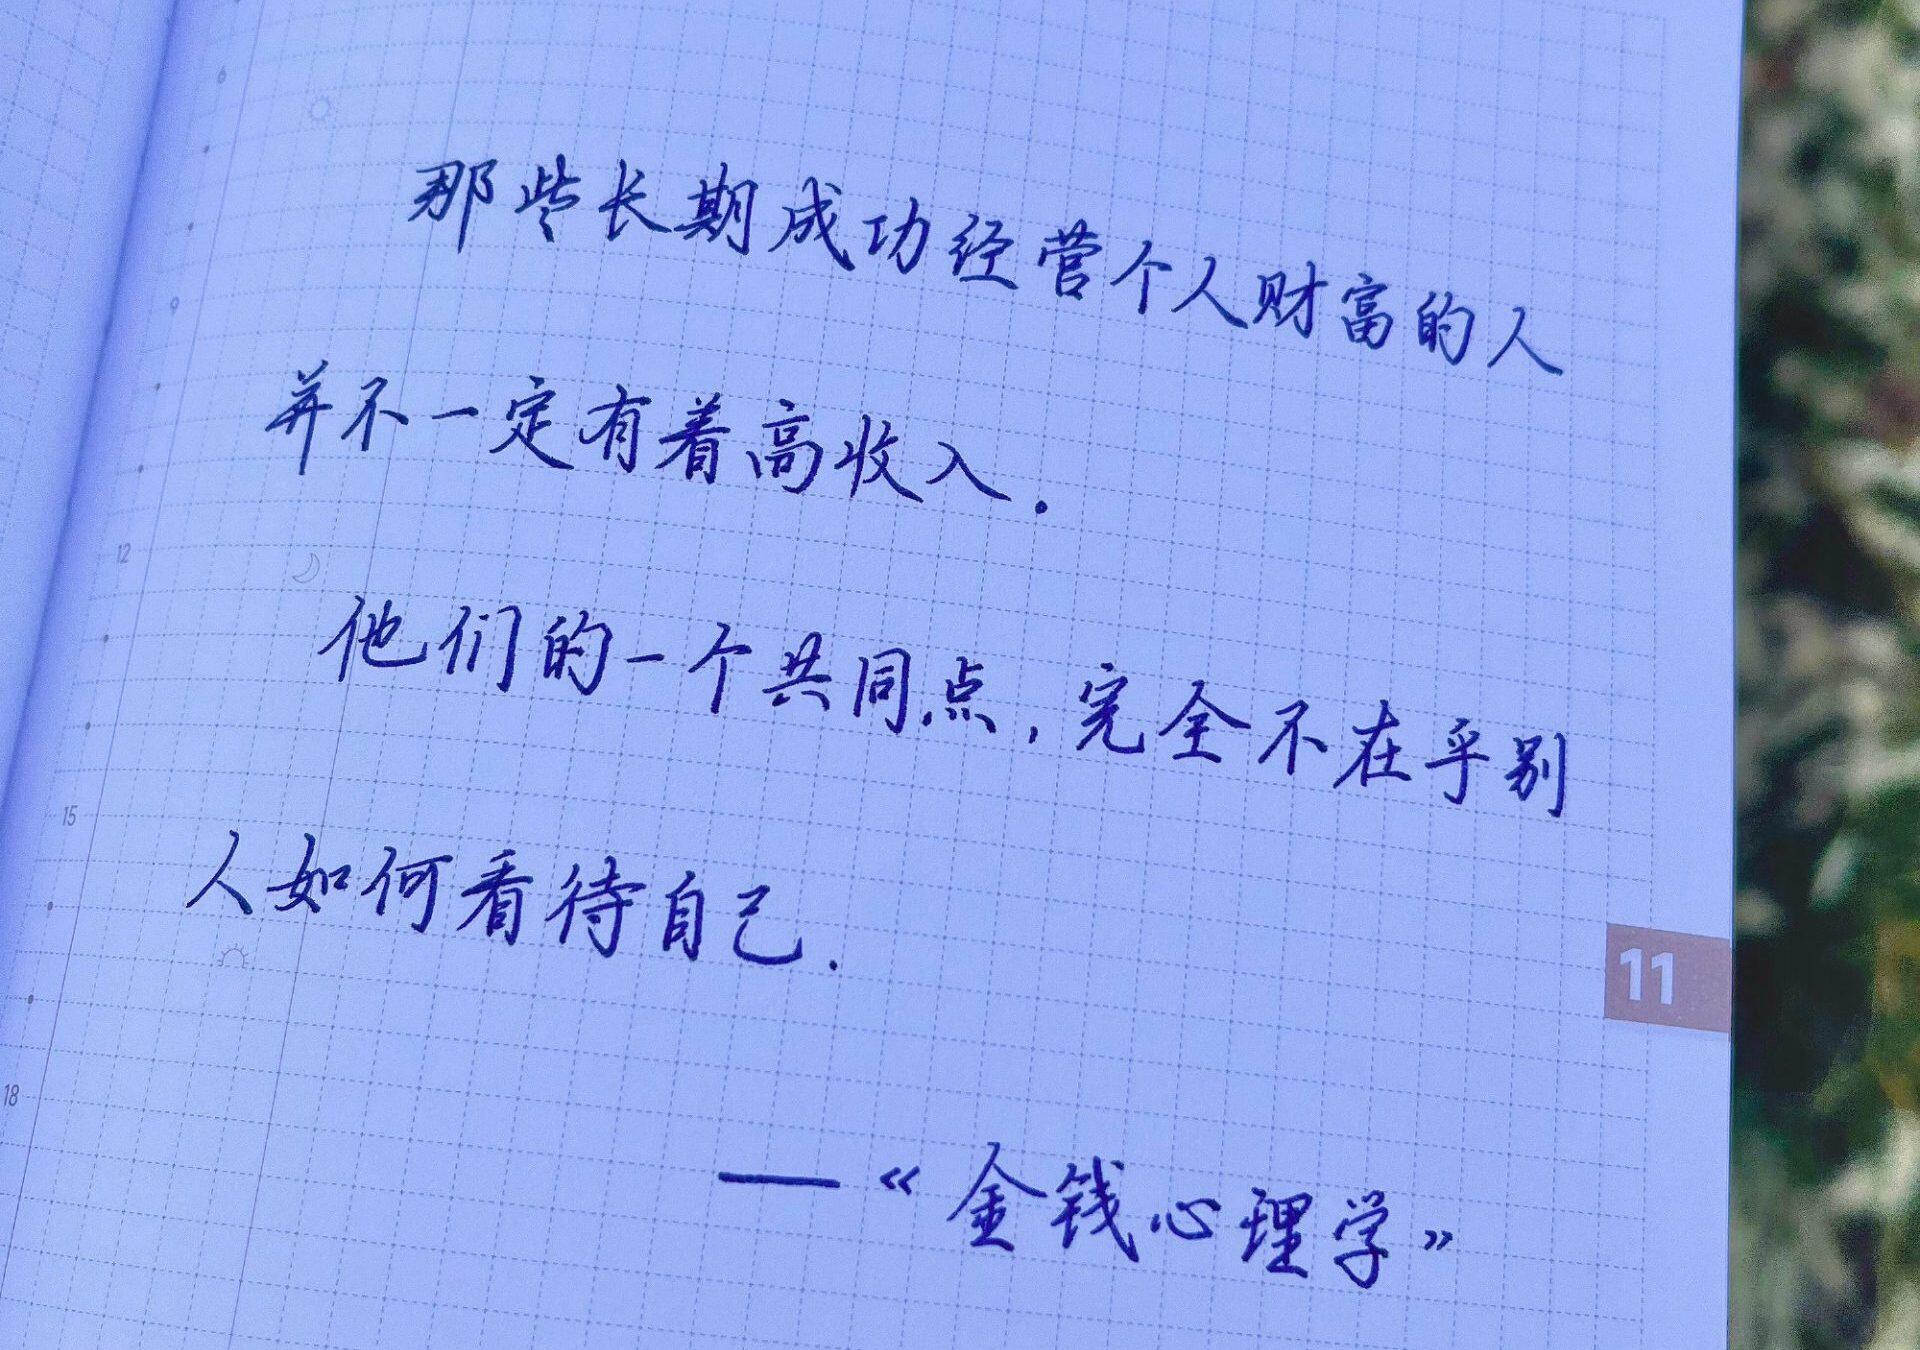 6
那些长期成功经营个人财富的人
9
并不一定有着高收入.
12
他们的一个共同点,完全不在乎别
15
人如何看待自己.
11
18
—《金钱心理学》